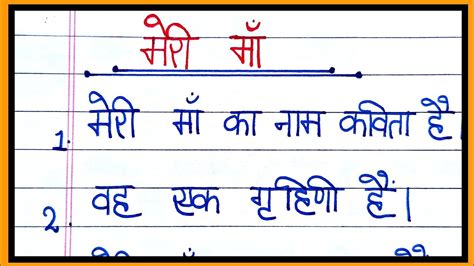 मेरी माँ
1. मेरी माँ का नाम कविता है।
2. वह एक गृहिणी हैं।